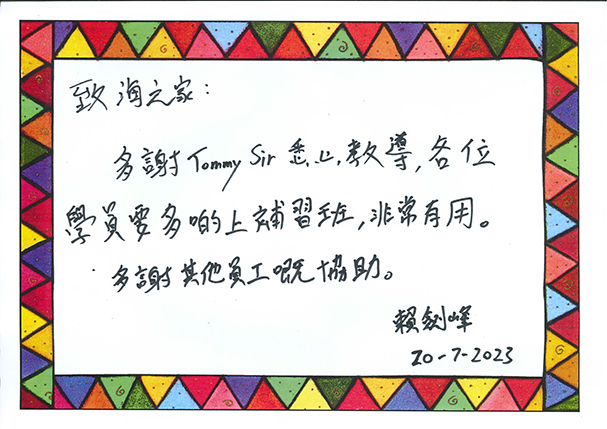 致海之家：
多謝Tommy Sir悉心教導，各位
學員要多啲上補習班，非常有用。
多謝其他員工嘅協助。
賴劍峰
20-7-2023